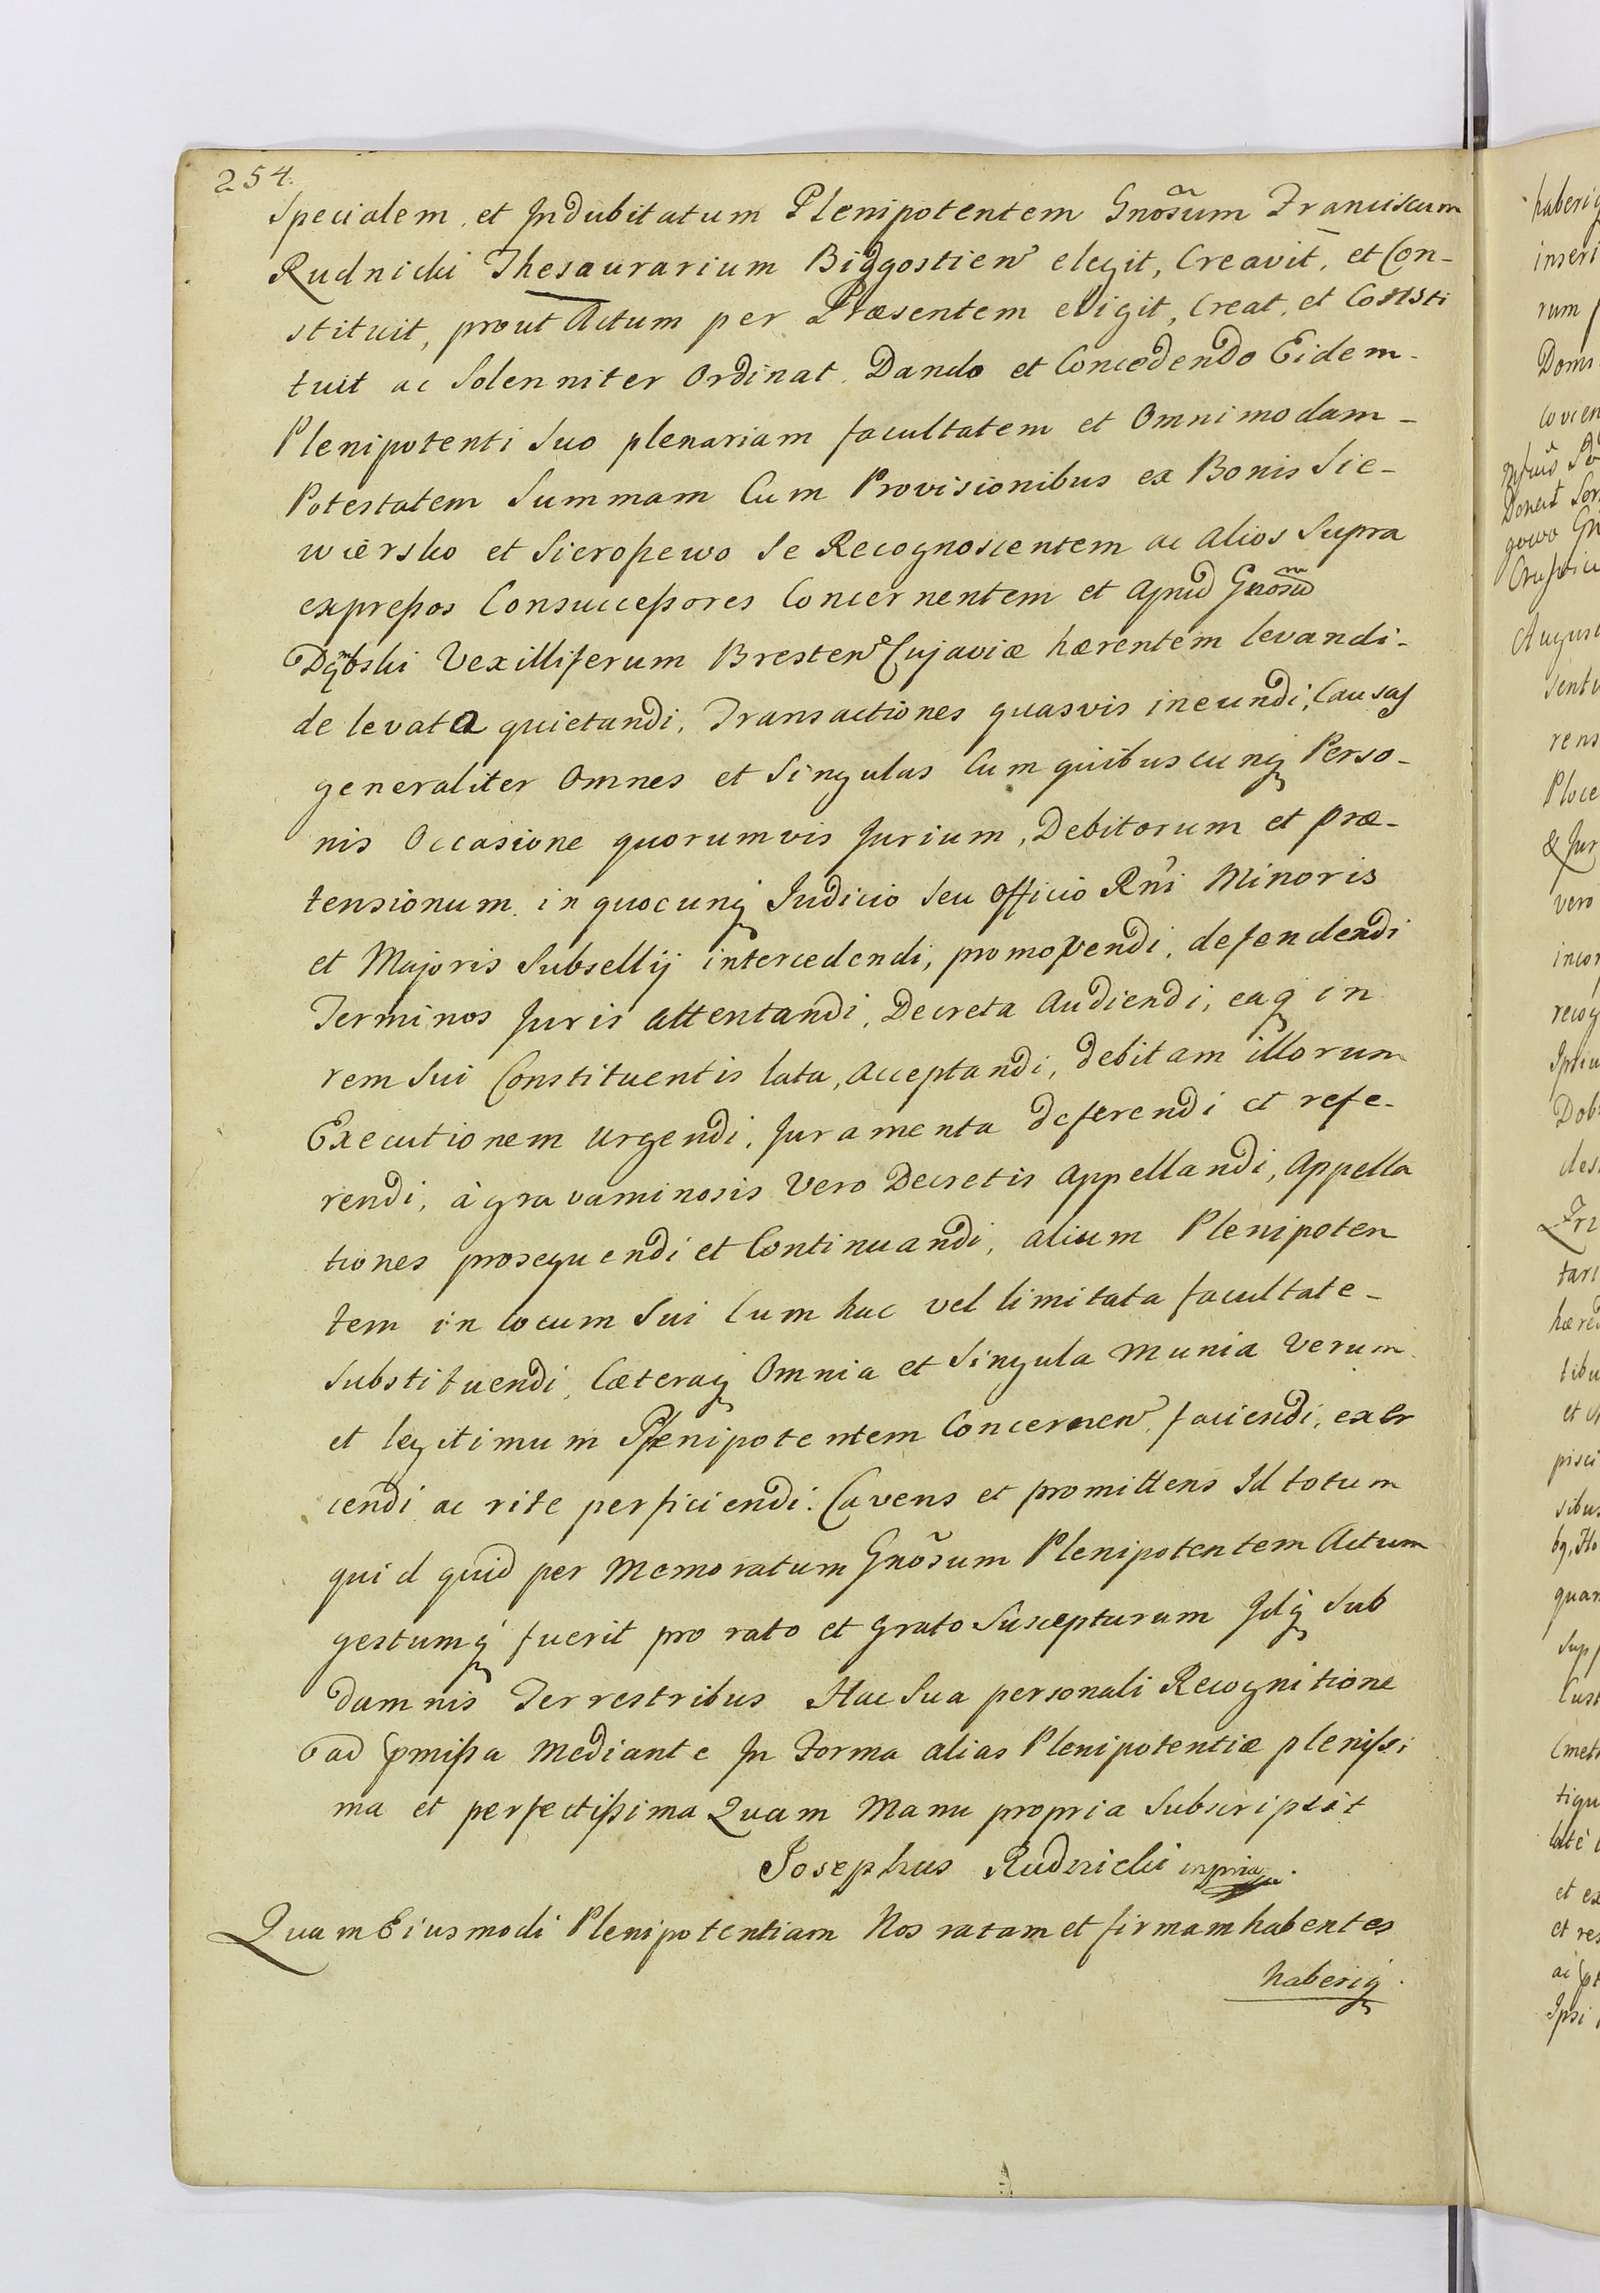 254.
Specialem et Indubitatum Plenipotentem Gnosum Franciscum
Rudnicki Thesaurarium Bidgostien elegit, Creavit, et Con-
stituit, prout Actum per Præsentem eligit, Creat, et Consti
tuit ac Solenniter Ordinat. Dando et Concedendo Eidem-
Plenipotenti Suo plenariam facultatem et Omnimodam-
Potestatem Summam Cum Provisionibus ex Bonis Sie-
wiersko et Sieroszewo Se Recognoscentem ac alios Supra
expressos Consuccessores Concernentem et apud Gnosum
Dąmbski Vexilliferum Bresten Cujaviæ hærentem levandi-
de levata quietandi, Transactiones quasvis ineundi, Causas
generaliter Omnes et Singulas Cum quibuscunq Perso-
nis Occasione quorumvis Jurium, Debitorum et præ-
tensionum in quocunq Judicio Seu Officio Rni Minoris
et Majoris Subsellij intercedendi, promovendi, defendendi
Terminos Juris attentandi, Decreta Audiendi, eaq in
rem Sui Constituentis lata, acceptandi, debitam illorum
Executionem urgendi, Juramenta deferendi et refe-
rendi, à gravaminosis Vero Decretis Appellandi, Appella
tiones prosequendi et Continuandi, alium Plenipoten
tem in locum Sui Cum hac vel limitata facultate-
Substituendi, Cæteraq Omnia et Singula Munia Verum
et legitimum Plenipotentem Concernen faciendi, exer
cendi ac rite perficiendi. Cavens et promittens Id totum
quid quid per Memoratum Gnosum Plenipotentem Actum
gestumq fuerit pro rato et grato Suscepturum Idq Sub
damnis Terrestribus Hac Sua personali Recognitione
ad pmissa Mediante In Forma alias Plenipotentiæ plenissi
ma et perfectissima Quam Manu propria Subscripsit
Josephus Rudnicki mpria.
Quam Eiusmodi Plenipotentiam Nos ratam et firmam habentes
haberiq
haberiq
inseri
rum
Domi
Augus
rens
vero
recog
quam
et ex
et res
Ipsi